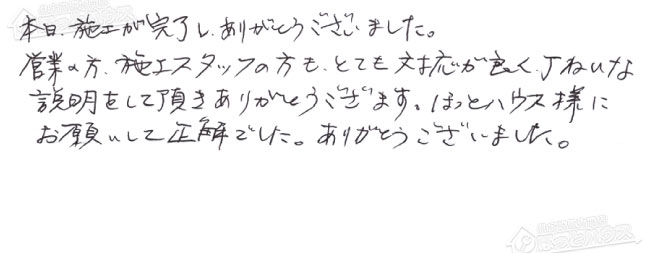 本日、施工が完了し、ありがとうございました。
営業の方、施工スタッフの方も、とても対応が良く、丁ねいな
説明をして頂きありがとうございます。ほっとハウス様に
お願いして正解でした。ありがとうございました。